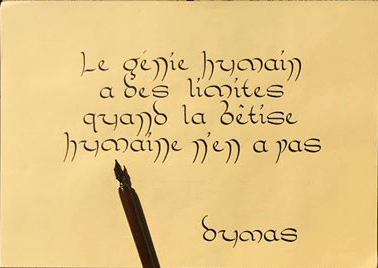 Le génie humain
a des limites
quand la bêtise
humaine n'en a pas
dumas